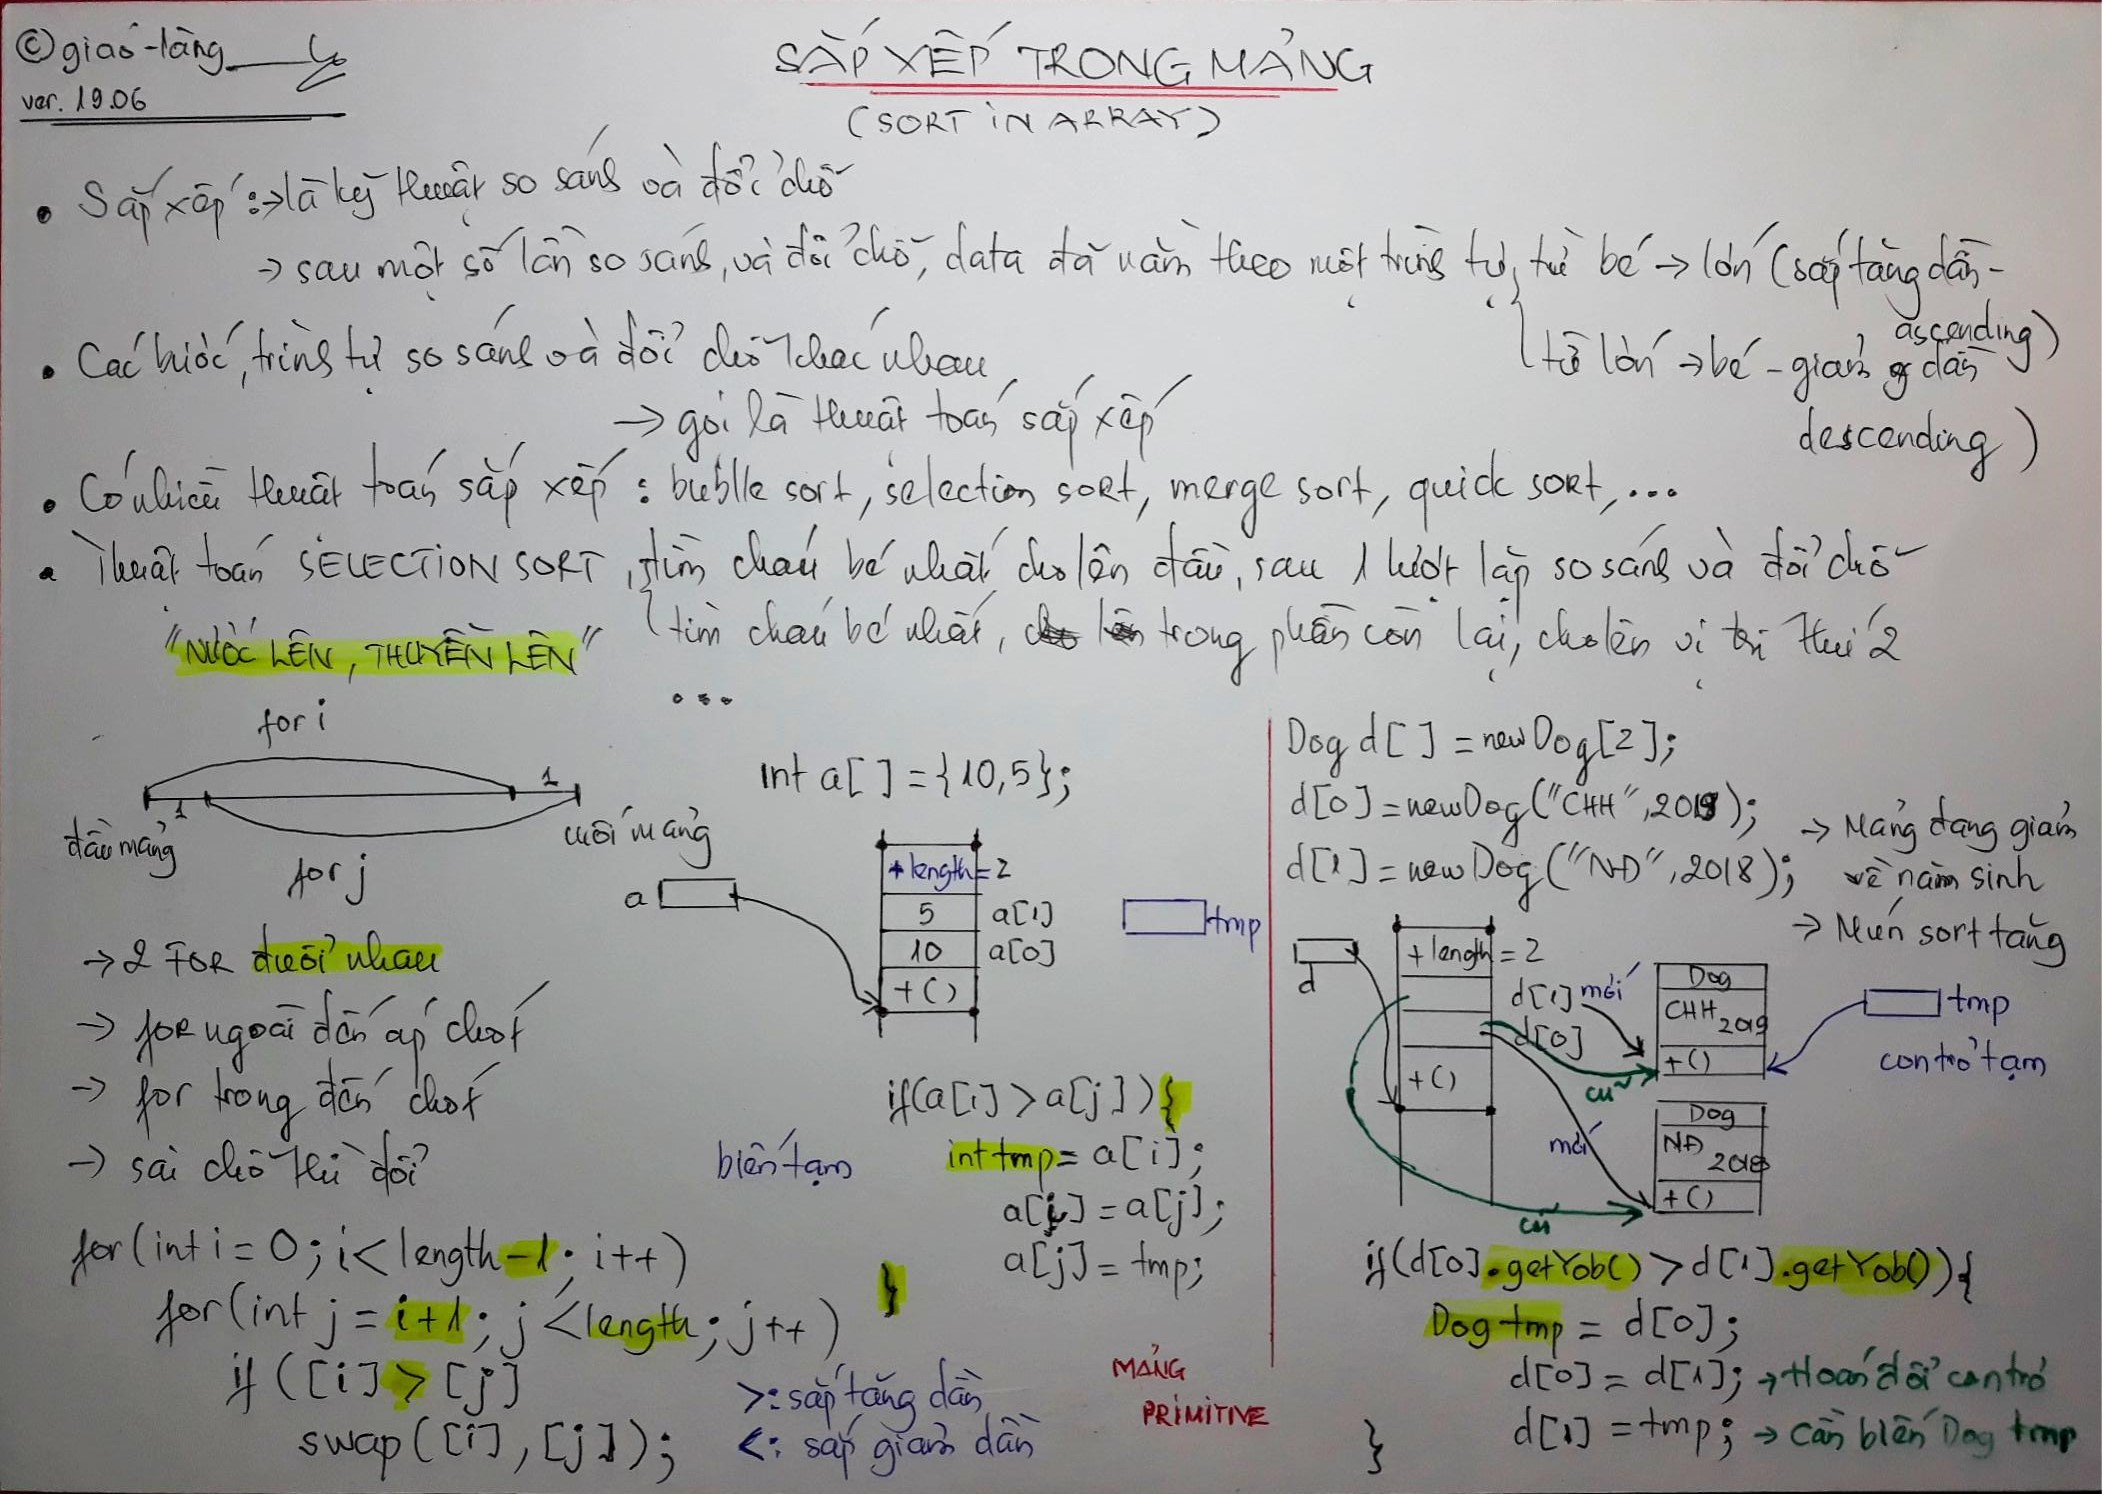 ©giáo-làng
ver. 19.06
SẮP XẾP TRONG MẢNG
(SORT IN ARRAY)
• Sắp xếp :→ là kỹ thuật so sánh và đổi chỗ
→ sau một số lần so sánh, và đổi chỗ, data đã nằm theo một trình tự, từ bé → lớn (sắp tăng dần -
ascending)
từ lớn → bé - giảm dần
descending)
• Các bước, trình tự so sánh và đổi chỗ khác nhau
→ gọi là thuật toán sắp xếp
• Có nhiều thuật toán sắp xếp : bublle sort, selection sort, merge sort, quick sort, ...
• Thuật toán SELECTION SORT, tìm cháu bé nhất cho lên đầu, sau 1 lượt lặp so sánh và đổi chỗ
tìm cháu bé nhất, trong phần còn lại, cho lên vị trí thứ 2
"NƯỚC LÊN, THUYỀN LÊN"
...
for i
1
1
đầu mảng
cuối mảng
for j
→ 2 FOR đuổi nhau
→ FOR ngoài đến áp chót
→ for trong đến chót
→ sai chỗ thì đổi
for(int i = 0; i < length-1; i++)
for(int j = i+1; j < length; j++)
if ([i] > [j]
swap([i], [j]);
>: sắp tăng dần
<: sắp giảm dần
int a[ ] = {10,5};
a
+ length = 2
5 a[1]
10 a[0]
+()
tmp
if(a[i] > a[j]){
biến tạm
int tmp = a[i];
a[i] = a[j];
a[j] = tmp;
}
MẢNG
PRIMITIVE
Dog d[ ] = new Dog[2];
d[0] = new Dog("CHH", 2019);
d[1] = new Dog("NĐ", 2018);
→ Mảng đang giảm
về năm sinh
→ Mún sort tăng
d
+ length = 2
d[1] mới
d[0]
+()
cũ
mới
cũ
Dog
CHH 2019
+()
Dog
NĐ
2018
+()
tmp
con trỏ tạm
if(d[0].getYob() > d[1].getYob()){
Dog tmp = d[0];
d[0] = d[1]; → Hoán đổi con trỏ
d[1] = tmp; → Cần biến Dog tmp
}